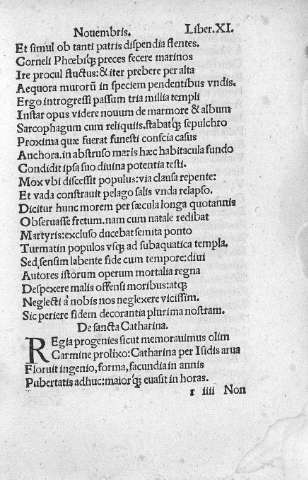 Nouembris. Liber.XI.
Et simul ob tanti patris dispendia flentes.
Corneli Phœbisq; preces fecere marinos
Ire procul fluctus: & iter prebere per alta
Aequora murorũ in speciem pendentibus vndis.
Ergo introgressi passum tria millia templi
Instar opus videre nouum de marmore & album
Sarcophagum cum reliquiis. stabatq; sepulchro
Proxima quæ fuerat funesti conscia casus
Anchora. in abstruso maris hæc habitacula fundo
Condidit ipsa suo diuina potentia testi.
Mox vbi discessit populus: via clausa repente:
Et vada constrauit pelago salis vnda relapso.
Dicitur hunc morem per sæcula longa quotannis
Obseruasse fretum. nam cum natale redibat
Martyris: excluso ducebat semita ponto
Turmatin populos vsq; ad subaquatica templa.
Sed, sensim labente fide cum tempore: diui
Autores istorum operum mortalia regna
Despexere malis offensi moribus: atq;
Neglecti à nobis nos neglexere vicissim.
Sic periere fidem decorantia plurima nostram.
De sancta Catharina.
REgia progenies sicut memorauimus olim
Carmine prolixo: Catharina per Isidis arua
Floruit ingenio, forma, facundia in annis
Pubertatis adhuc: maiorq; euasit in horas.
r iiii Non